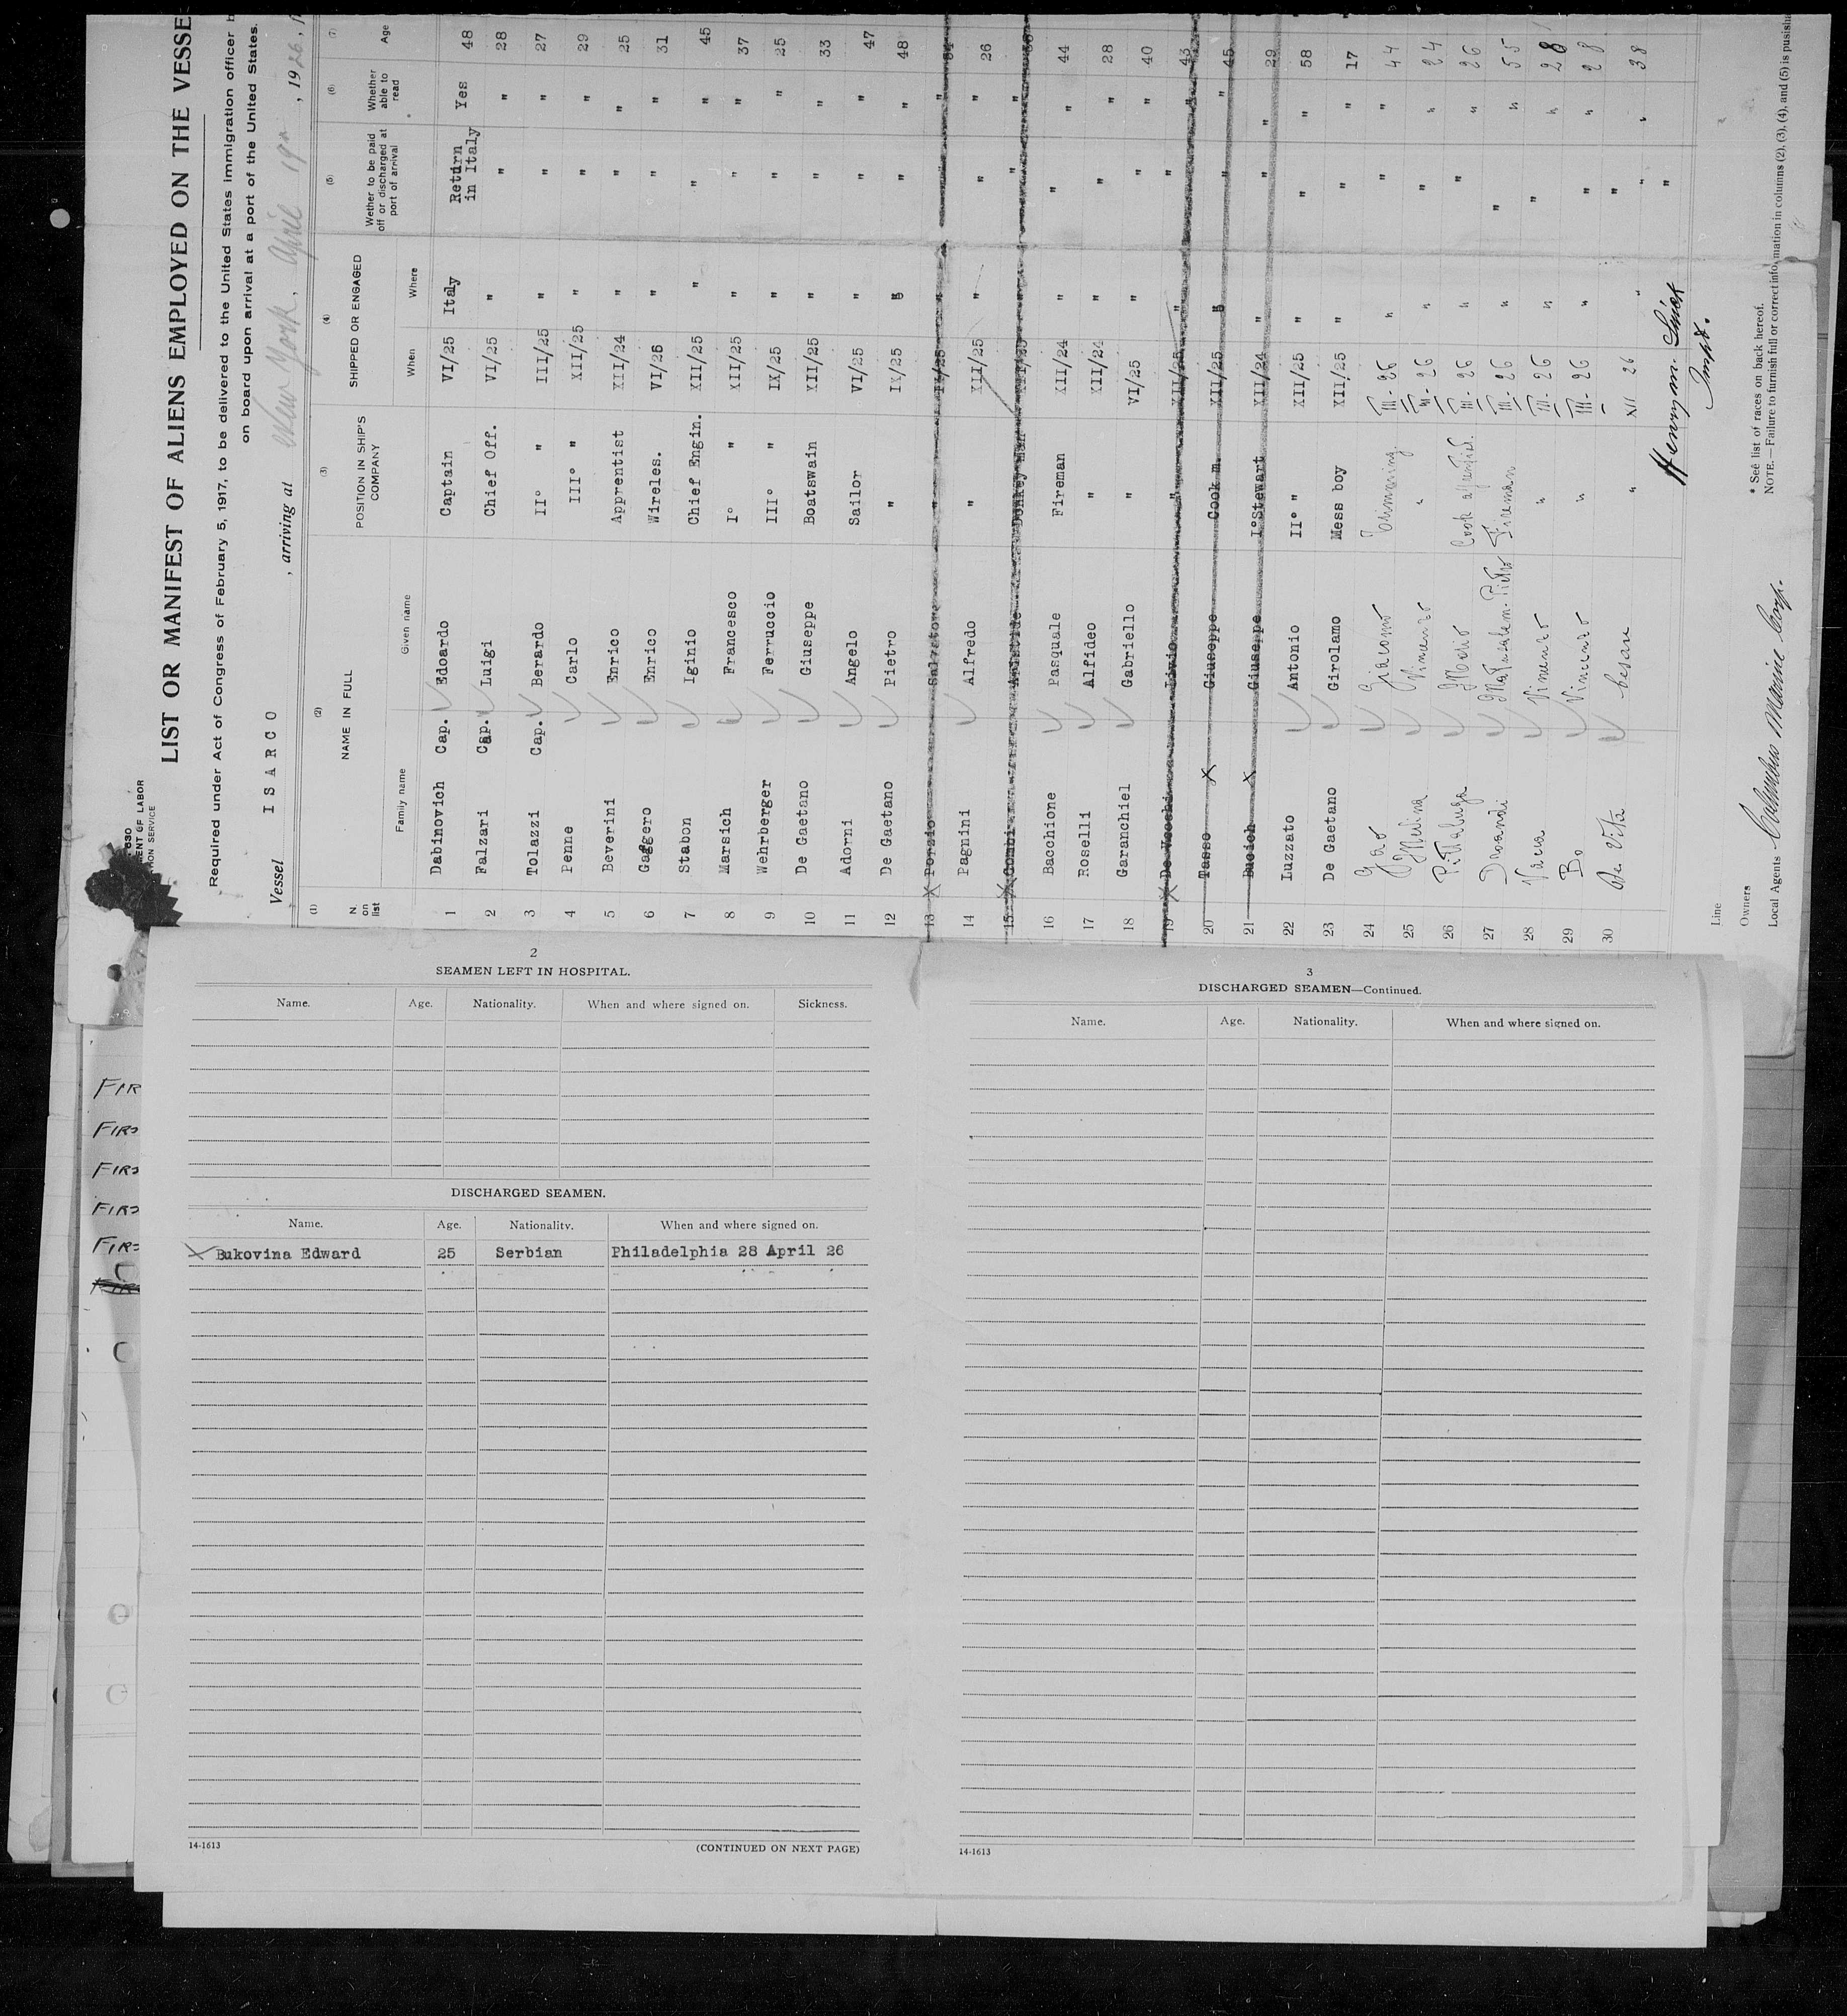 630
ENT OF LABOR
ION SERVICE
LIST OR MANIFEST OF ALIENS EMPLOYED ON THE VESSE
Required under Act of Congress of February 5, 1917, to be delivered to the United States immigration officer b
on board upon arrival at a port of the United States.
Vessel I S A R C O , arriving at New York, April 19 , 1926,
(1) (2) (3) (4) (5) (6) (7)
N. on list NAME IN FULL POSITION IN SHIP'S COMPANY SHIPPED OR ENGAGED Wether to be paid off or discharged at port of arrival Whether able to read Age
Family name Given name When Where
1 Dabinovich Cap. Edoardo Captain VI/25 Italy Return in Italy Yes 48
2 Falzari Cap. Luigi Chief Off. VI/25 " " " 28
3 Tolazzi Cap. Berardo II° " III/25 " " " 27
4 Penne Carlo III° " XII/25 " " " 29
5 Beverini Enrico Apprentist XII/24 " " " 25
6 Gaggero Enrico Wireles. VI/25 " " " 31
7 Stabon Iginio Chief Engin. XII/25 " " " 45
8 Marsich Francesco I° " XII/25 " " " 37
9 Wehrberger Ferruccio III° " IX/25 " " " 25
10 De Gaetano Giuseppe Boatswain XII/25 " " " 33
11 Adorni Angelo Sailor VI/25 " " " 47
12 De Gaetano Pietro " IX/25 " " " 48
13 X Porzio Salvatore " IX/25 " " "
14 Pagnini Alfredo " XII/25 " " " 26
15 X Combi Aristide Donkey man XII/25 " "
16 Bacchione Pasquale Fireman XII/24 " " " 44
17 Roselli Alfideo " XII/24 " " " 28
18 Garanchiel Gabriello " VI/25 " " " 40
19 X De Livio " XII/25 " " " 43
20 Tasso X Giuseppe Cook m. XII/25 " " " 45
21 Bucich X Giuseppe I°Stewart XII/24 " " " 29
22 Luzzato Antonio II° " XII/25 " " " 58
23 De Gaetano Girolamo Mess boy XII/25 " " " 17
24 Gao Giacomo Trimming III-26 " " " 44
25 Medina Vincenzo " III-26 " " " 24
26 Pittaluga Cook III-26 " " " 26
27 Pietro Fireman III-26 " " " 55
28 Vacca Vincenzo " III-26 " " " 28
29 Bo Vincenzo " III-26 " " " 28
30 De Vita Cesare " XII 26 " " " 38
Henry m.
Inspt.
Line
Owners
Local Agents Columbus Marine Corp.
* See list of races on back hereof.
NOTE. — Failure to furnish full or correct information in columns (2), (3), (4), and (5) is punisha
FIR
FIRS
FIRS
FIRS
FIRS
2
SEAMEN LEFT IN HOSPITAL.
Name. Age. Nationality. When and where signed on. Sickness.
DISCHARGED SEAMEN.
Name. Age. Nationality. When and where signed on.
X Bukovina Edward 25 Serbian Philadelphia 28 April 26
14-1613 (CONTINUED ON NEXT PAGE)
3
DISCHARGED SEAMEN—Continued.
Name. Age. Nationality. When and where signed on.
14-1613